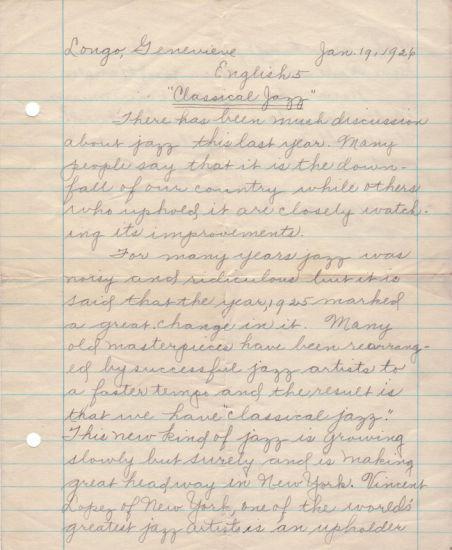 Longo, Genevieve Jan. 19, 1926
English 5
"Classical Jazz"
There has been much discussion
about jazz this last year. Many
people say that it is the down-
fall of our country while others
who uphold it are closely watch-
ing its improvements.
For many years jazz was
noisy and ridiculous but it is
said that the year, 1925 marked
a great change in it. Many
old masterpieces have been rearrang-
ed by successful jazz artists to
a faster tempo and the result is
that we have "classical jazz."
This new kind of jazz is growing
slowly but surely and is making
great headway in New York. Vincent
Lopez of New York, one of the world's
greatest jazz artists is an upholder